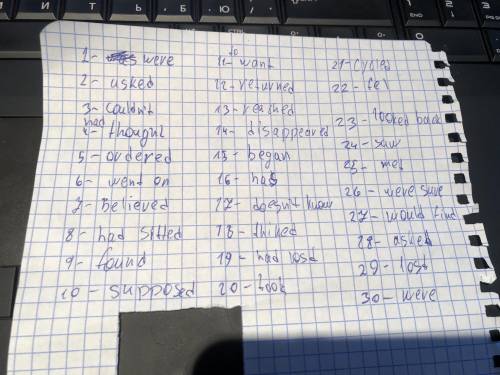 1- were
2- asked
3- couldn't
had
4- thought
5- ordered
6- went on
7- believed
8- had sitted
9- found
10- supposed
to
11- want
12- returned
13- reached
14- disappeared
15- began
16- has
17- doesn't know
18- thiked
19- had losd
20- took
21- cycled
22- fel
23- looked back
24- saw
25- met
26- were sure
27- would find
28- asked
29- lost
30- were